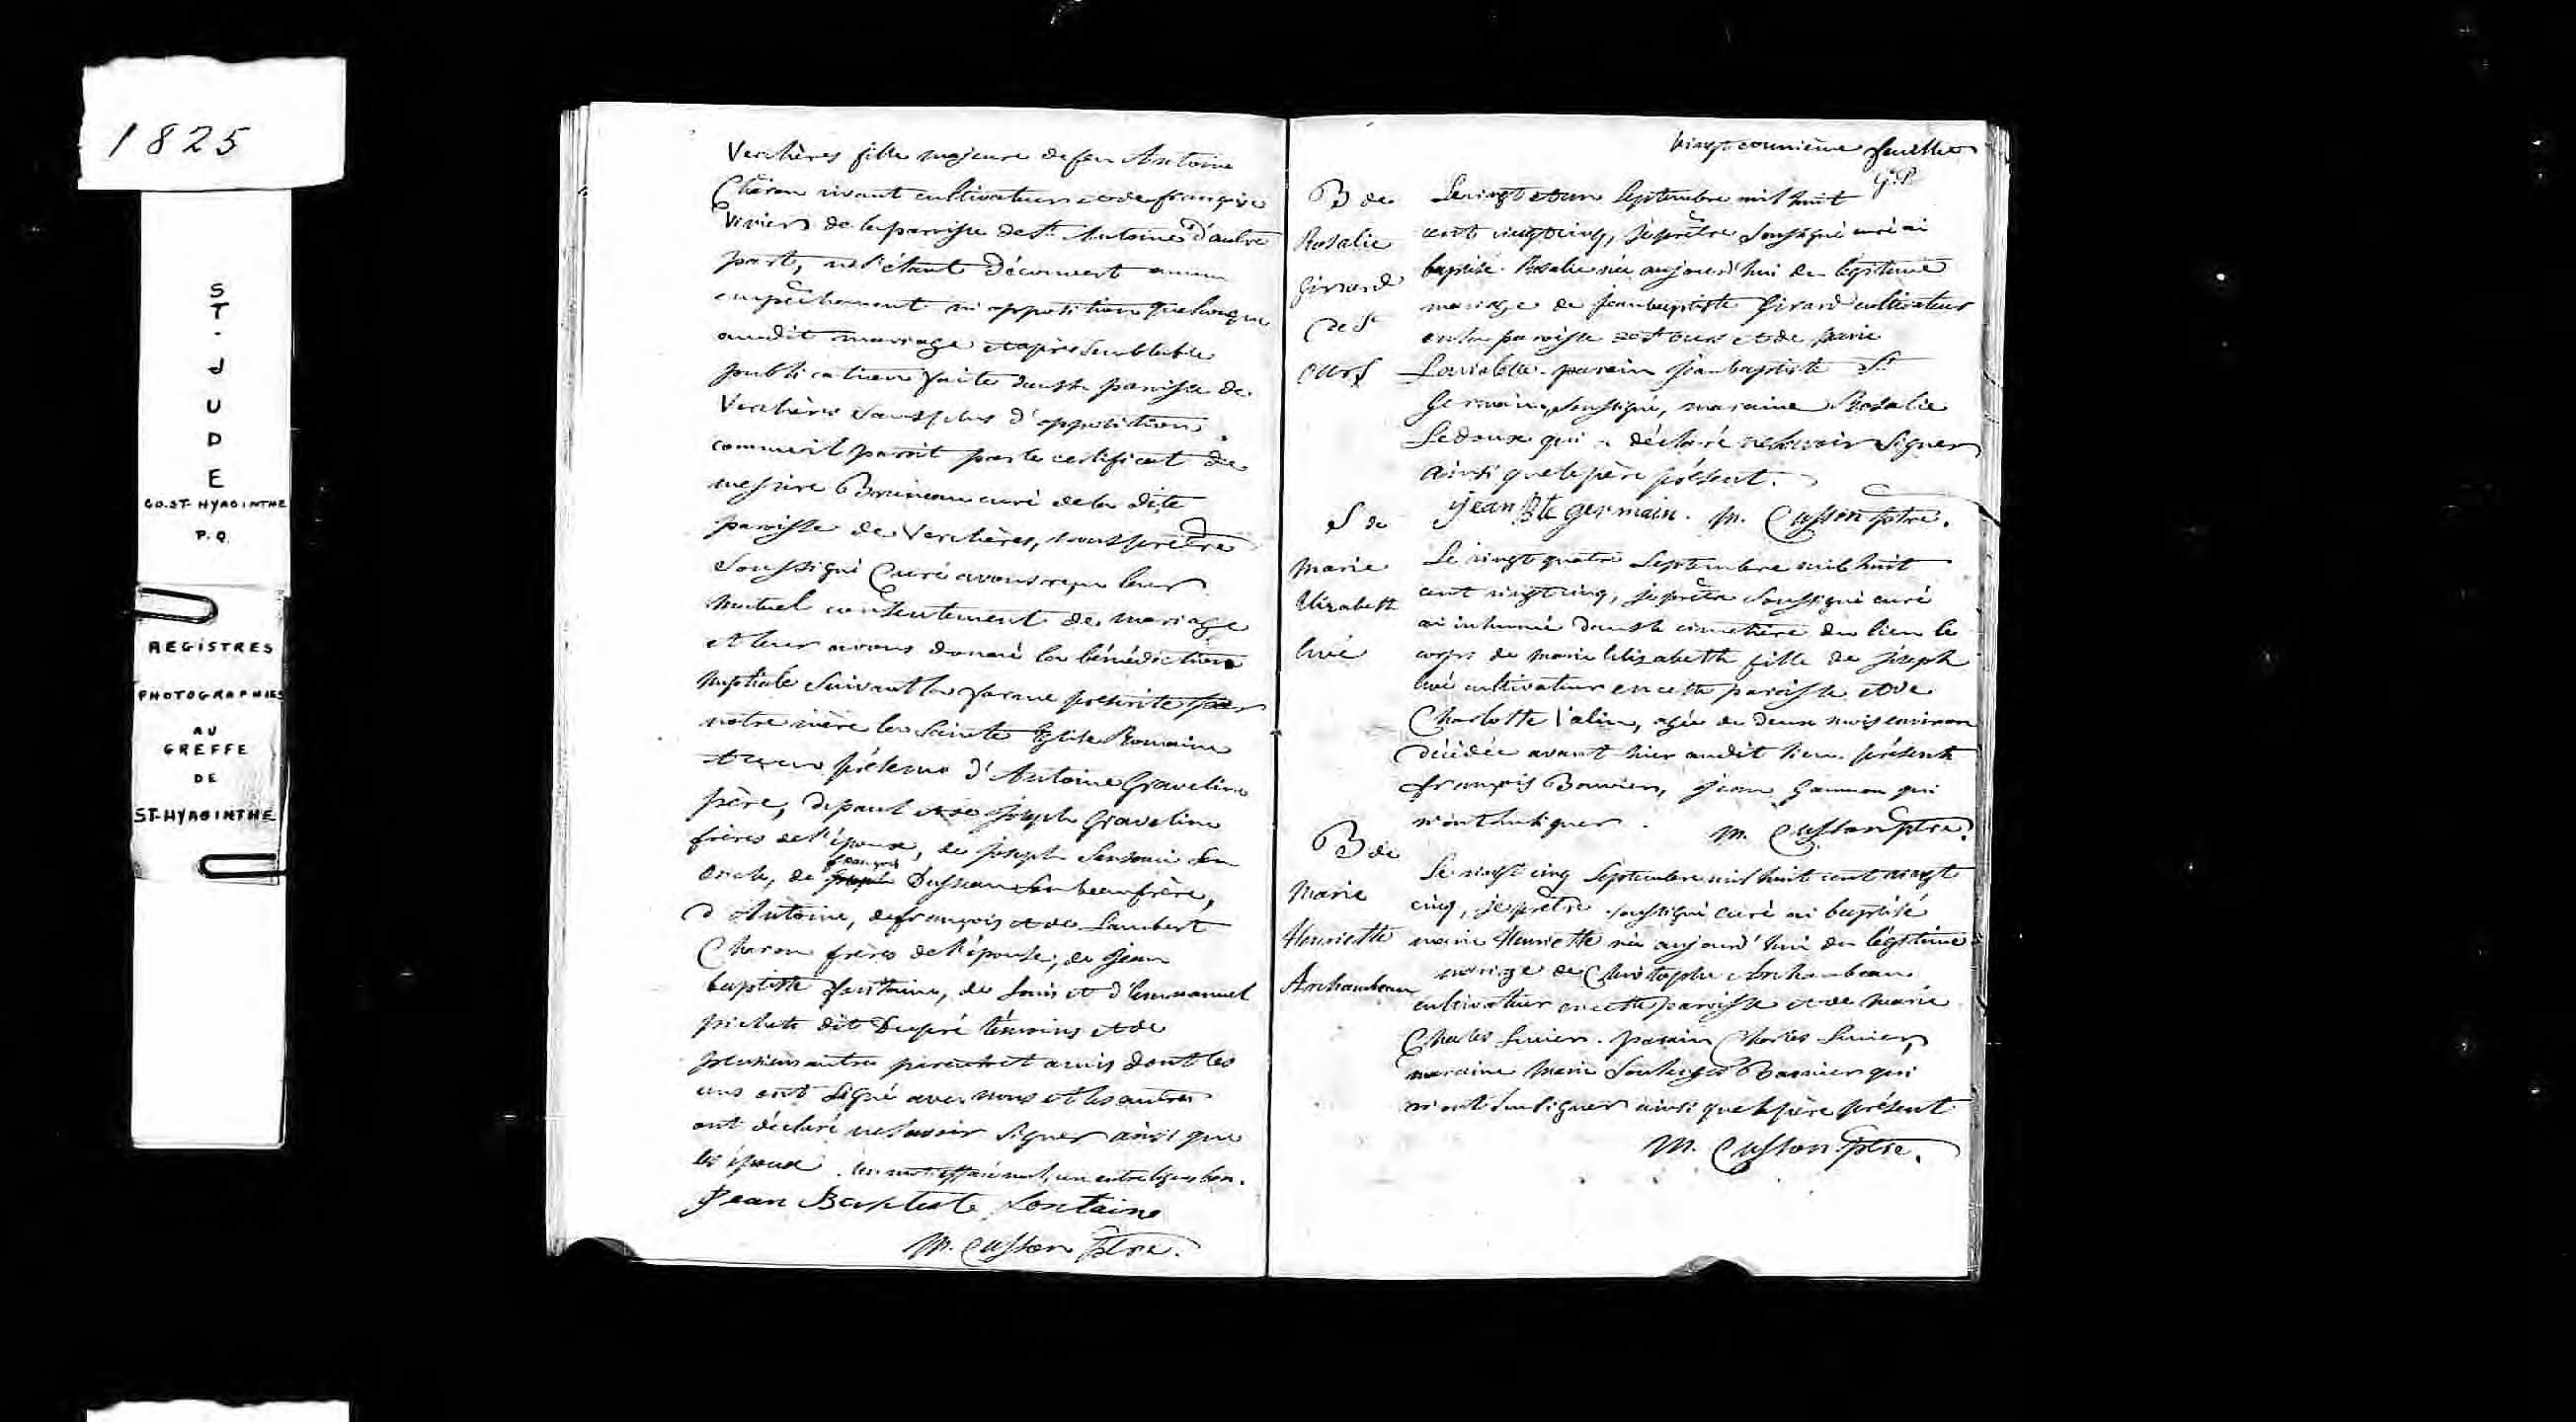 1825
ST. JUDE
CO. ST-HYACINTHE
P.Q.
REGISTRES
PHOTOGRAPHIES
AU
GREFFE
DE
ST-HYACINTHE
Verchères fille majeure de feu Antoine
Charon vivant cultivateur et de françoise
Viviers de la paroisse de St. Antoine d'autre
part, ne s'étant découvert aucun
empêchement ni opposition quelconque
audit mariage et après semblable
publication faite dans la paroisse de
Verchères sans plus d'opposition
comme il paroit par le certificat de
messire Bruneau curé de la dite
paroisse de Verchères, nous prêtre
Soussigné Curé avons reçu leur
mutuel consentement de mariage
et leur avons donné la bénédiction
nuptiale suivant la forme prescrite par
notre mère la Sainte Eglise Romaine
et ce en présence d'Antoine Graveline
père, de paul et de joseph Graveline
frères de l'époux, de joseph
oncle, de françois joseph Dussau son beaufrère,
d'Antoine, de françois et de Lambert
Charon frères de l'épouse, de jean
baptiste fontaine, de Louis et d'Emmanuel
pichet dit Dupré témoins et de
plusieurs autres parens et amis dont les
uns ont signé avec nous et les autres
ont déclaré ne savoir signer ainsi que
les époux. un mot effacé nul, un entreligne bon.
Jean Baptiste Fontaine
M. Cusson ptre.
vingt et unième feuillet
G.P.
B de
Rosalie
Girard
de St
Ours
Le vingt et un Septembre mil huit
cent vingt cinq, je prêtre soussigné curé ai
baptisé Rosalie née aujourd'hui du légitime
mariage de jean baptiste Girard cultivateur
en la paroisse de St ours et de marie
parain jean baptiste St
Germain, soussigné, maraine Rosalie
Ledoux qui a déclaré ne savoir signer
ainsi que le père présent.
jean Bte germain. M. Cusson ptre.
S de
Marie
Elizabeth
Le vingt quatre Septembre mil huit
cent vingt cinq, je prêtre soussigné curé
ai inhumé dans le cimetière du lieu le
corps de marie Elizabeth fille de joseph
cultivateur en cette paroisse et de
Charlotte Valin, agée de deux mois environ
décédée avant hier audit lieu. présents
françois Bouvier, jean Gamon qui
n'ont su signer. M. Cusson ptre.
B de
Marie
Henriette
Archambeau
Le vingt cinq Septembre mil huit cent vingt
cinq, je prêtre soussigné curé ai baptisé
marie Henriette née aujourd'hui du légitime
mariage de Christophe Archambeau
cultivateur en cette paroisse et de marie
Charles parain Charles
maraine Marie qui
n'ont su signer ainsi que le père présent
M. Cusson ptre.